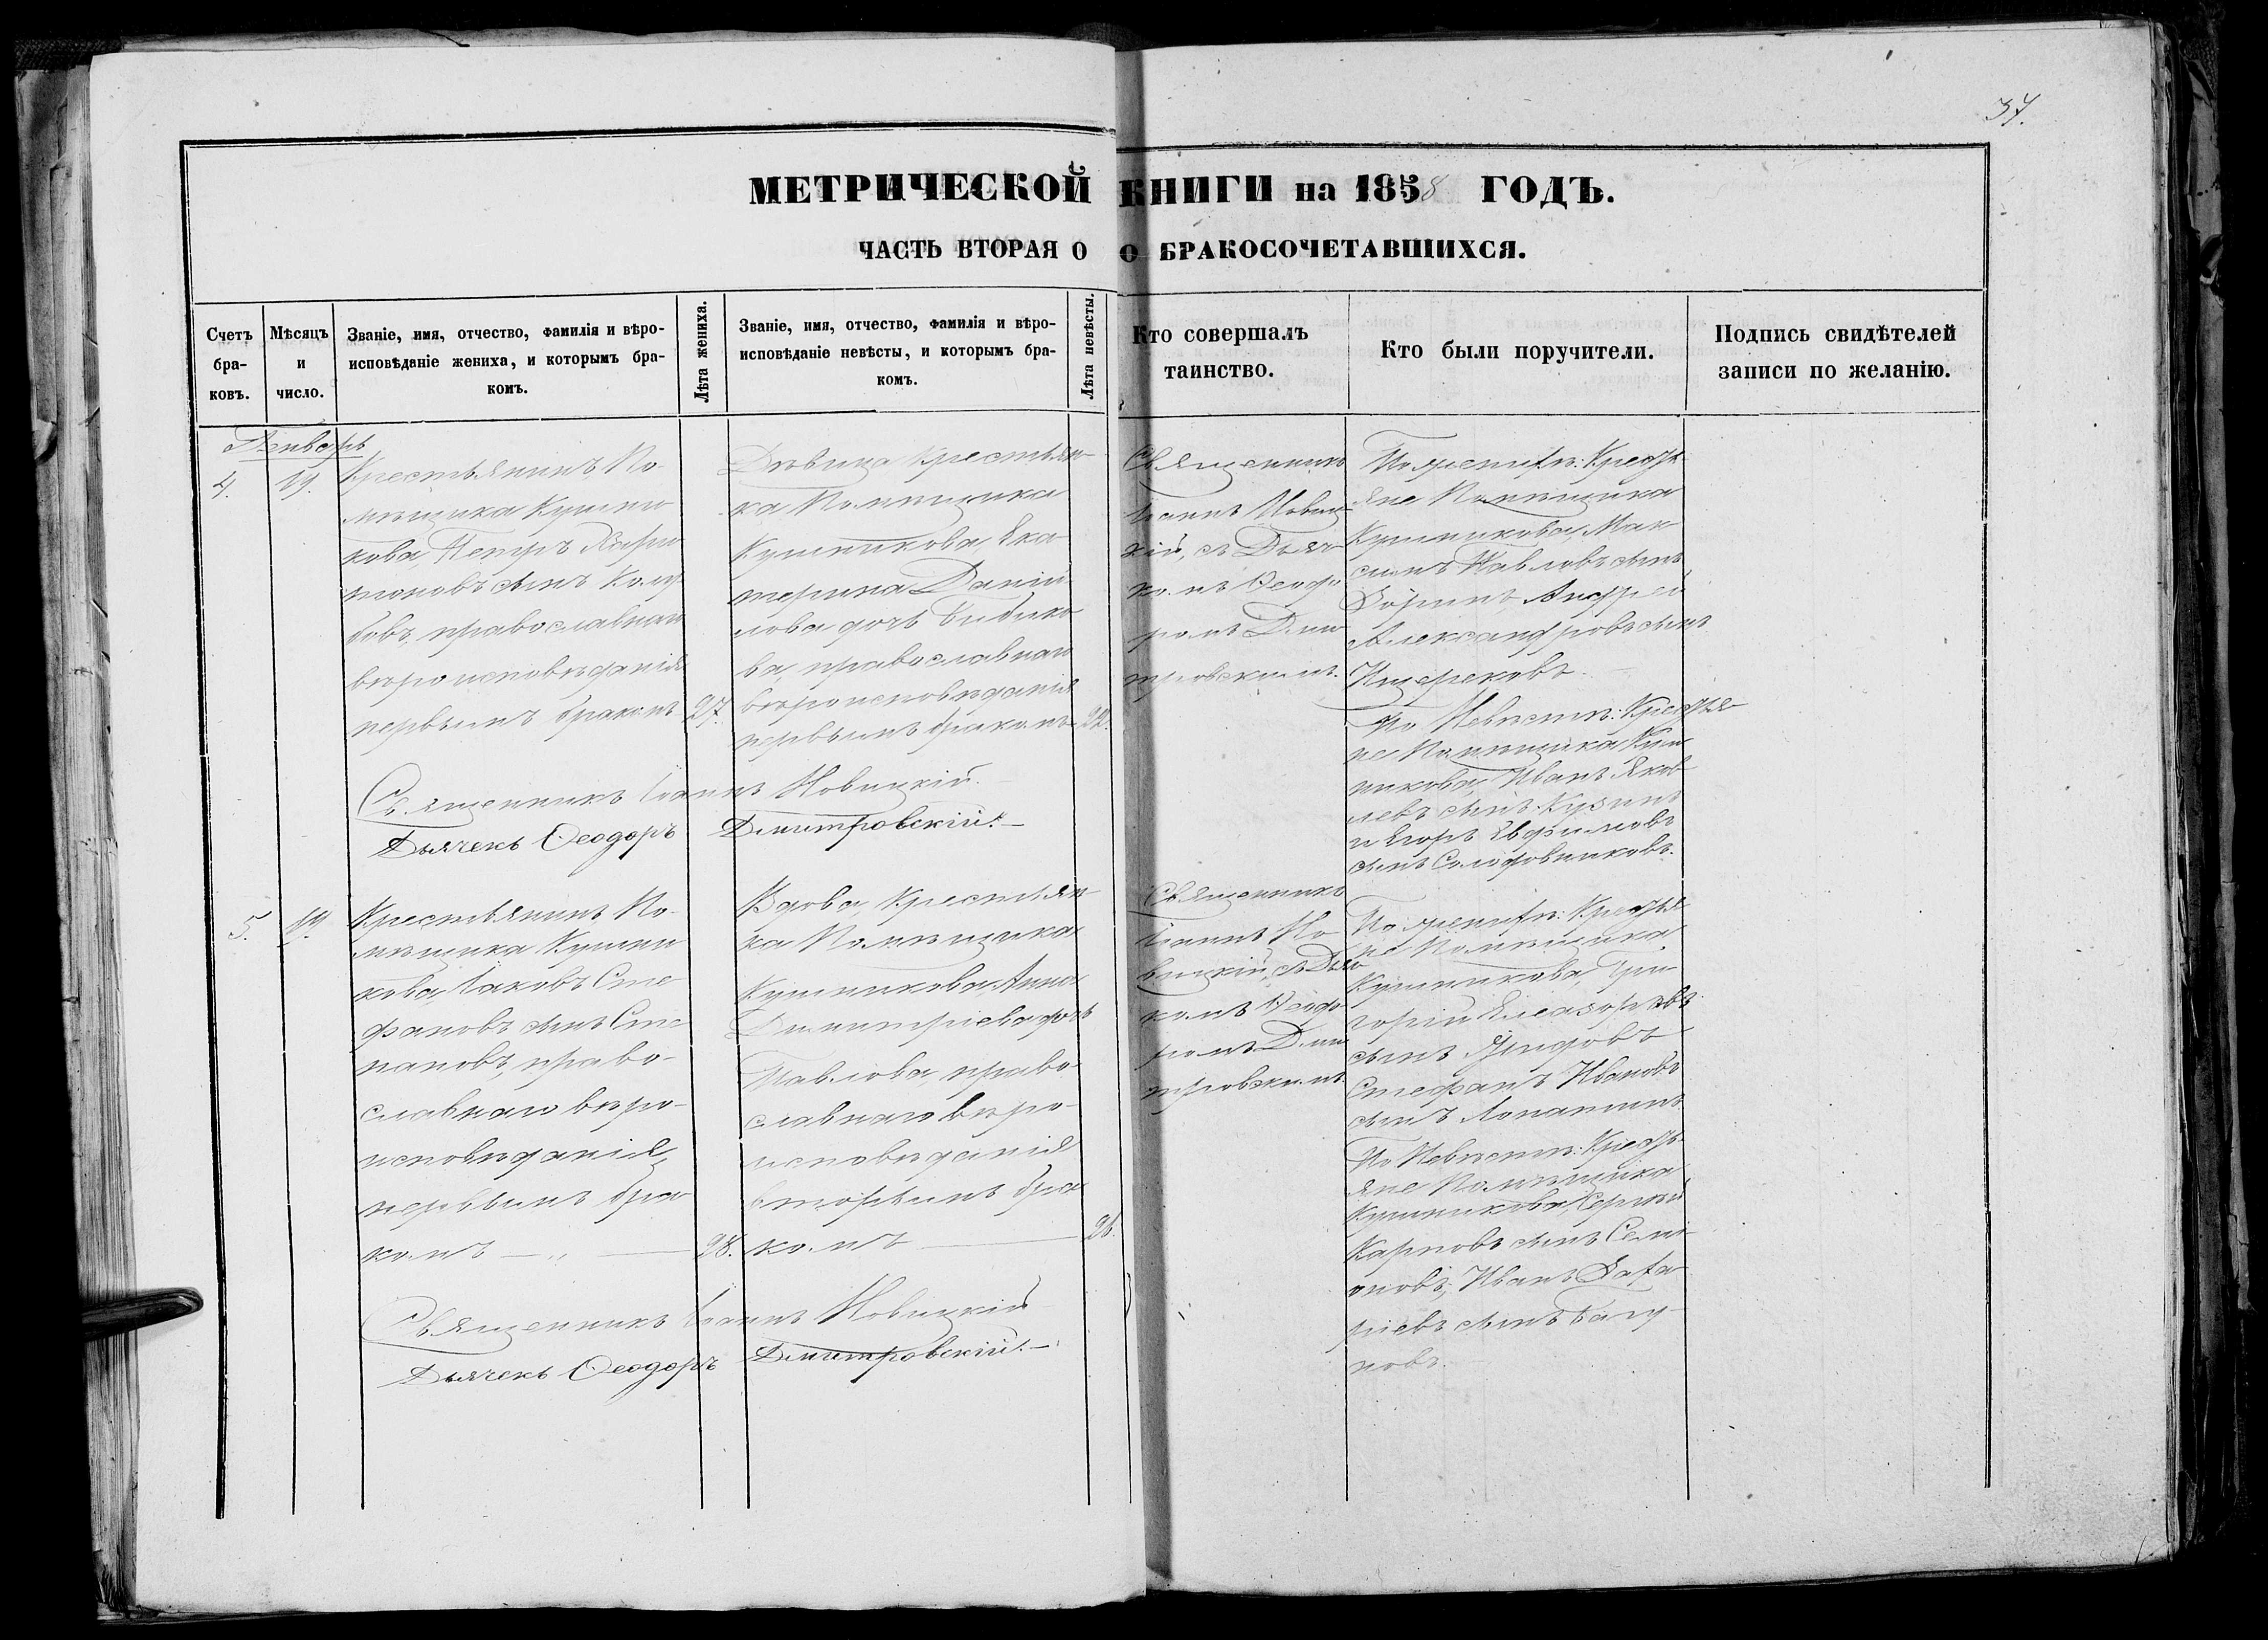 37.
МЕТРИЧЕСКОЙ КНИГИ на 1858 ГОДЪ.
ЧАСТЬ ВТОРАЯ О О БРАКОСОЧЕТАВШИХСЯ.
Счетъ браковъ.
Мѣсяцъ и число.
Званіе, имя, отчество, фамилія и вѣро-
исповѣданіе жениха, и которымъ бра-
комъ.
Лѣта жениха.
Званіе, имя, отчество, фамилія и вѣро-
исповѣданіе невѣсты, и которымъ бра-
комъ.
Лѣта невѣсты.
Кто совершалъ
таинство.
Кто были поручители.
Подпись свидѣтелей
записи по желанію.
Январь
4.
19.
Крестьянинъ По-
мѣщика Кушни
кова, Петръ Хари
тоновъ сынъ Голу
бовъ, православнаго
вѣроисповѣданія
первымъ бракомъ
27.
Дѣвица Крестьян-
ка Помѣщика
Кушникова, Ека
терина Даніи
лова дочь Бибико
ва, православнаго
вѣроисповѣданія
первымъ бракомъ
22.
Священникъ
Іоаннъ Новиц-
кій, съ Дьяч-
комъ Ѳеодо
ромъ Дми
тровскимъ.
По женихѣ: Кресть
яне Помѣщика
Кушникова, Мак-
симъ Павловъ сынъ
Зоринъ Андрей
Александровъ сынъ
Ищерековъ.
По Невѣстѣ: Крестья-
не Помѣщика Куш
никова, Иванъ Яков
левъ сынъ Кузинъ
и Егоръ Евфимовъ
сынъ Солодовниковъ.
Священникъ Іоаннъ Новицкій.
Дьячекъ Ѳеодоръ Дмитровскій.
5.
19.
Крестьянинъ По-
мѣщика Кушни
кова, Іаковъ Сте
фановъ сынъ Сте
пановъ, право-
славнаго вѣро-
исповѣданія,
первымъ бра
комъ
28.
Вдова, Крестьян-
ка Помѣщика
Кушникова Анна
Димитріева дочь
Павлова, право
славнаго вѣро-
исповѣданія
вторымъ бра
комъ
26.
Священникъ
Іоаннъ Но
вицкій, съ Дьяч
комъ Ѳеодо
ромъ Дми
тровскимъ.
По женихѣ: Крестья
не Помѣщика
Кушникова, Гри-
горій Елеазаровъ
сынъ
Стефанъ Ивановъ
сынъ Лопатинъ.
По Невѣстѣ: Кресть-
яне Помѣщика
Кушникова, Сергѣй
Карповъ сынъ Семи-
оновъ, Иванъ Заха
ріевъ сынъ
новъ.
Священникъ Іоаннъ Новицкій
Дьячекъ Ѳеодоръ Дмитровскій.